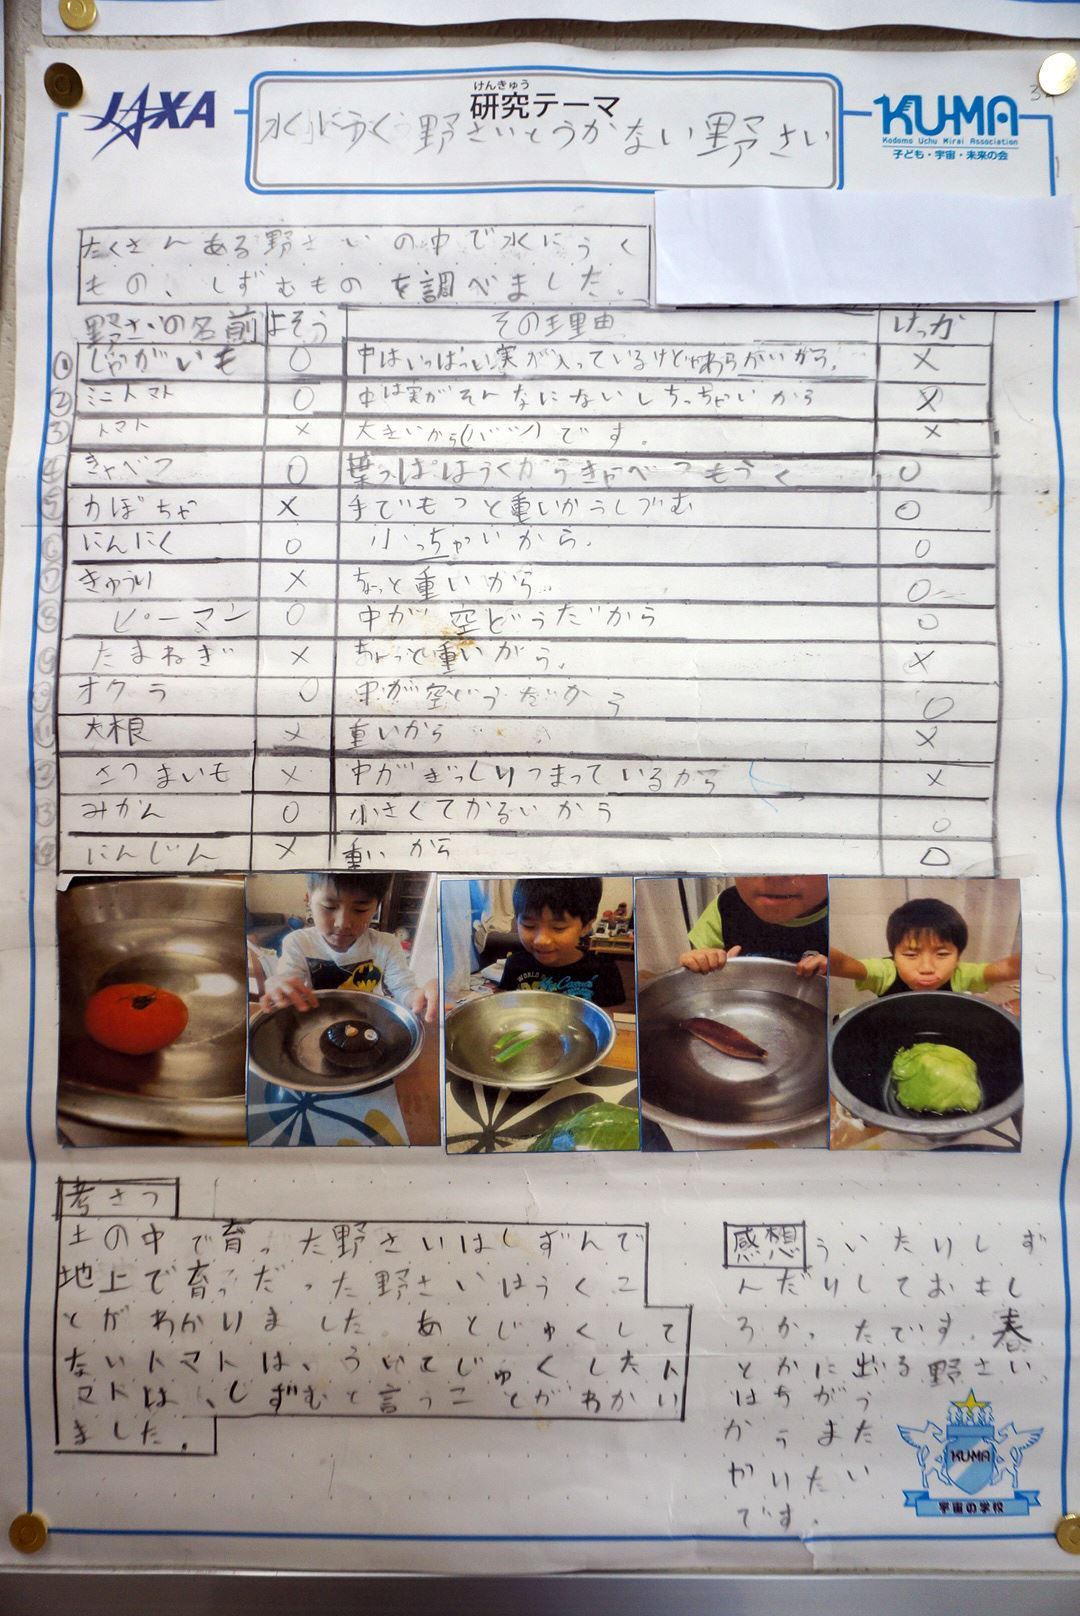 JAXA
けんきゅう
研究テーマ
水にうく野さいとうかない野さい
KU-MA
Kodomo Uchu Mirai Association
子ども・宇宙・未来の会
たくさんある野さいの中で水にうく
もの、しずむものを調べました。
野さいの名前 よそう その理由 けっか
① じゃがいも ○ 中はいっぱい実が入っているけどやわらかいから。 ×
② ミニトマト ○ 中は実がそんなにないしちっちゃいから ×
③ トマト × 大きいから(バツ)です。 ×
④ きゃべつ ○ 葉っぱはうくからきゃべつもうく ○
⑤ かぼちゃ × 手でもつと重いからしづむ ○
⑥ にんにく ○ 小っちゃいから。 ○
⑦ きゅうり × ちょっと重いから。 ○
⑧ ピーマン ○ 中が空どうだから ○
⑨ たまねぎ × ちょっと重いがら。 ×
オクラ ○ 中が空どうだから ○
⑪ 大根 × 重いから ×
⑫ さつまいも × 中がぎっしりつまっているから ×
⑬ みかん ○ 小さくてかるいから ○
⑭ にんじん × 重いから △
考さつ
土の中で育った野さいはしずんで
地上で育っだった野さいはうくこ
とがわかりました。あとじゅくして
ないトマトは、ういてじゅくしたト
マトは、しずむと言うことがわかい
ました。
感想 ういたりしず
んだりしておもし
ろかったです。春
とかに出る野さい
はちがう
からまた
やいたい
です。
KU-MA
宇宙の学校